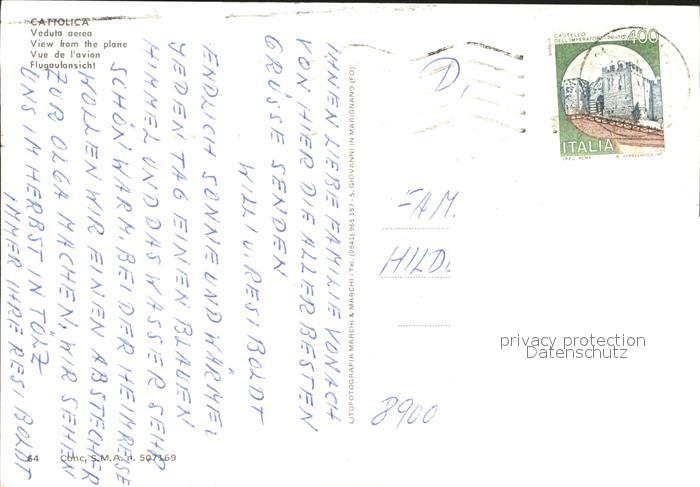 CATTOLICA
Veduta aerea
View from the plane
Vue de l'avion
Flugaulansicht
IHNEN LIEBE FAMILIE VONACH
VON HIER DIE ALLERBESTEN
GRÜSSE SENDEN
WILLI U. RESI BOLDT
ENDLICH SONNE UND WÄRME,
JEDEN TAG EINEN BLAUEN
HIMMEL UND DAS WASSER SEHR
SCHÖN WARM. BEI DER HEIMREISE
WOLLEN WIR EINEN ABSTECHER
ZUR OLGA MACHEN; WIR SEHEN
UNS IM HERBST IN TÖLZ
IMMER IHRE RESI BOLDT
LITOFOTOGRAFIA MARCHI & MARCHI - Tel. (0541) 965 157 - S. GIOVANNI IN MARIGNANO (FO)
D,
FAM.
HILD
8900
CASTELLO
DELL'IMPERATORE · PRATO
400
ITALIA
I.P.Z.S. ROMA
privacy protection
Datenschutz
64 Conc, S.M.A. n. 507169